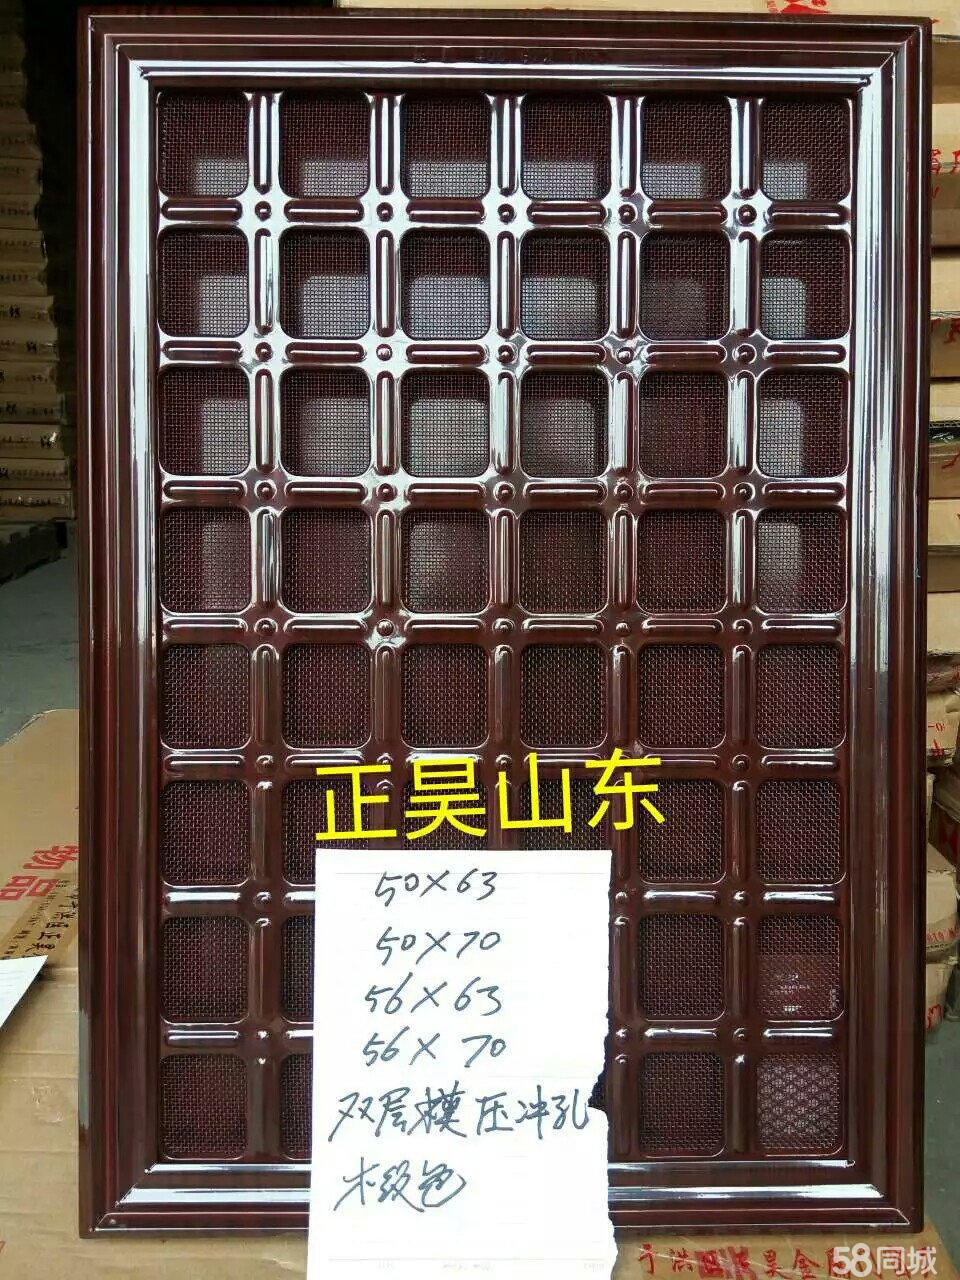 正昊山东
50×63
50×70
56×63
56×70
双层模压冲孔
木纹色
物品
58同城